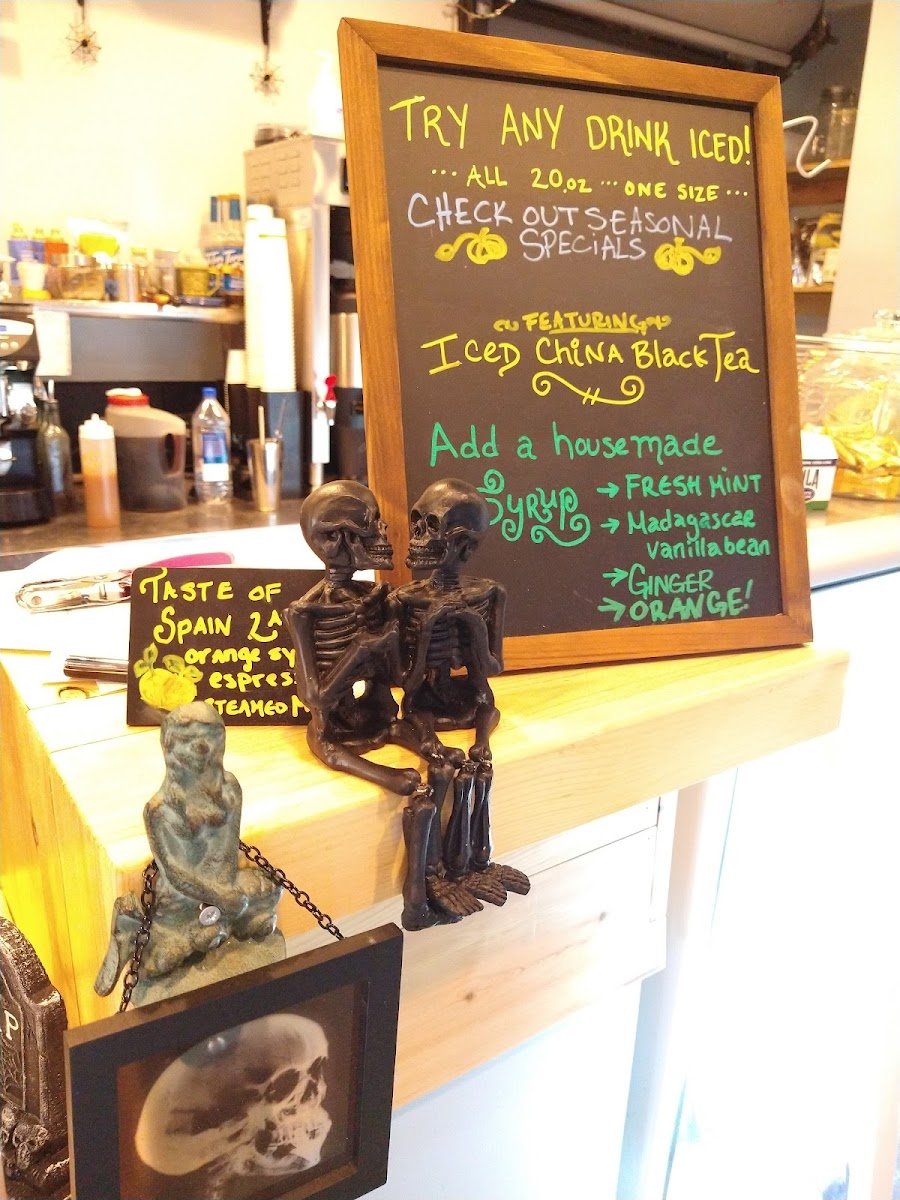 TRY ANY DRINK ICED!
... ALL 20.oz ... ONE SIZE ...
CHECK OUT SEASONAL
SPECIALS
FEATURING
ICED CHINA Black Tea
Add a housemade
Syrup → FRESH MINT
→ Madagascar
vanilla bean
→ GINGER
→ ORANGE!
TASTE OF
SPAIN
orange
STEAMED
P